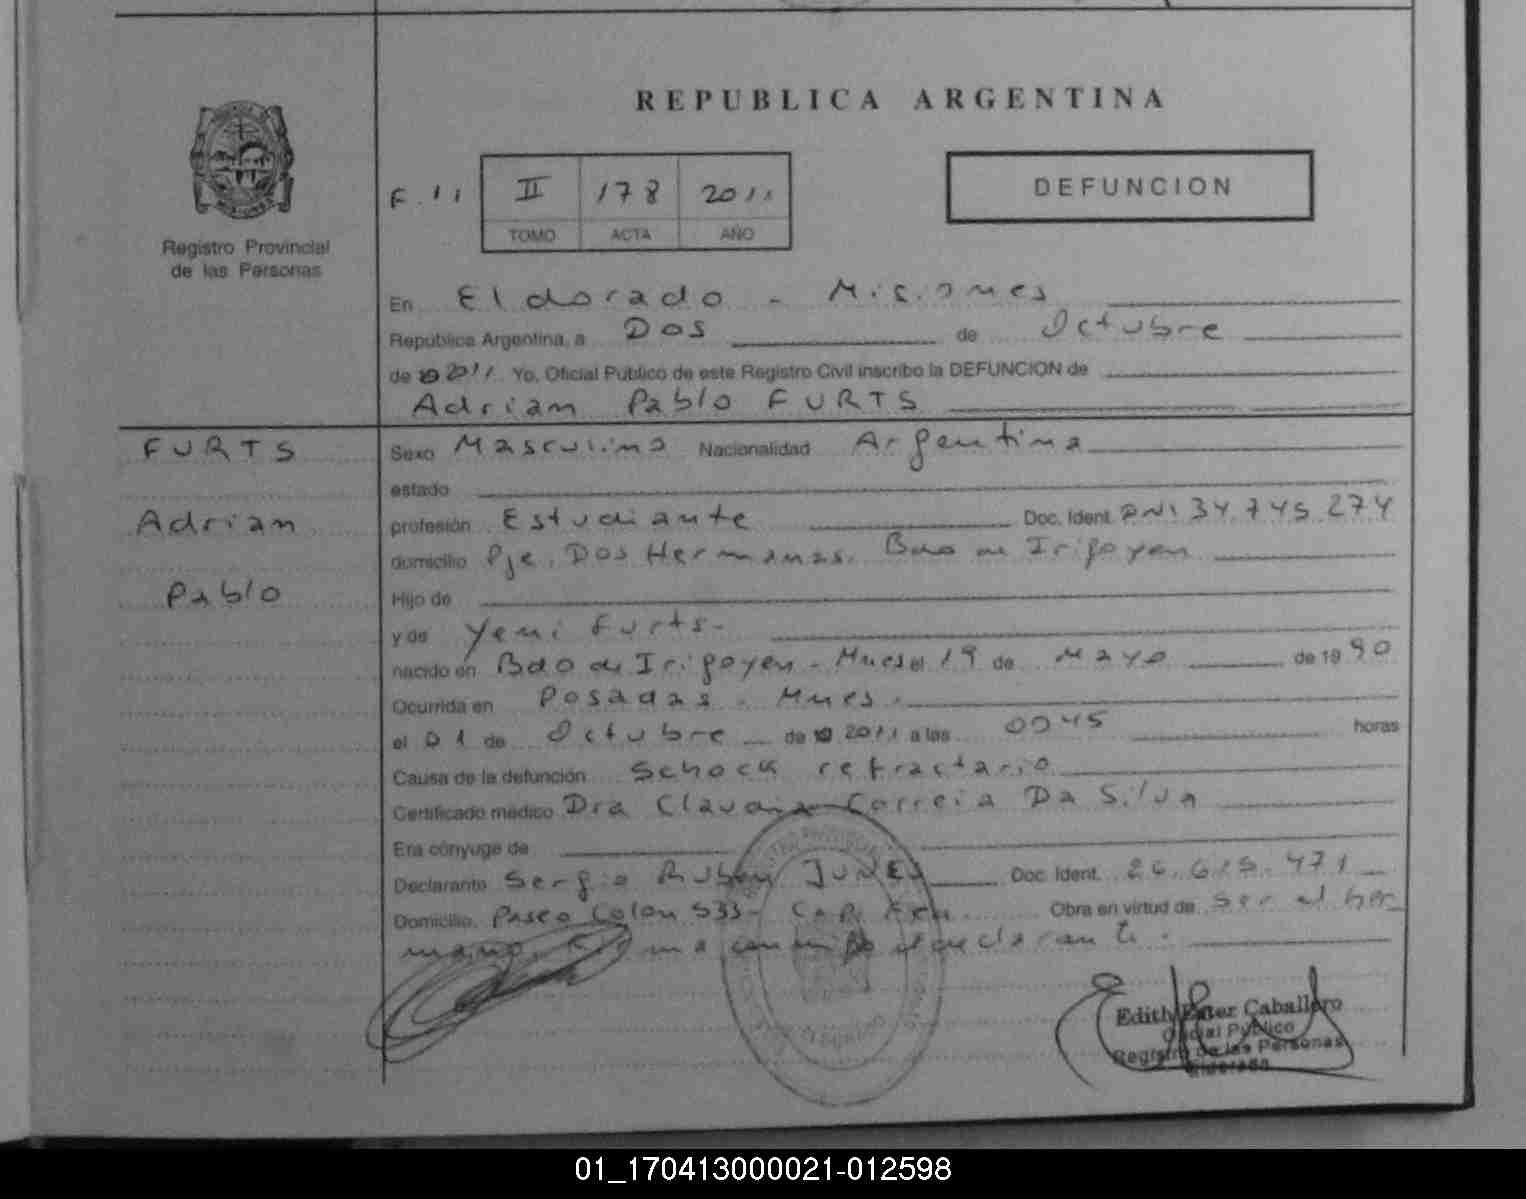 REPUBLICA ARGENTINA
Registro Provincial
de las Personas
F. 11
II 178 2011
TOMO ACTA AÑO
DEFUNCION
En Eldorado - Misiones
República Argentina, a Dos de Octubre
de 2011 Yo, Oficial Público de este Registro Civil inscribo la DEFUNCION de
Adrian Pablo FURTS
FURTS
Adrian
Pablo
Sexo Masculino Nacionalidad Argentina
estado
profesión Estudiante Doc. Ident. DNI 34.745.274
domicilio Pje. Dos Hermanas. Bdo de Irigoyen
Hijo de
y de Yeni Furts-
nacido en Bdo de Irigoyen - Mnes el 19 de Mayo de 1990
Ocurrida en Posadas - Mnes.
el 01 de Octubre de 2011 a las 0045 horas
Causa de la defunción Schock refractario
Certificado médico Dra Claudia Correia Da Silva
Era cónyuge de
Declarante Sergio Ruben Doc. Ident. 26.615.471
Domicilio Paseo Colon 533- Cap. Obra en virtud de Ser el her
mano. el declarante.
Edith Ester Caballero
Oficial Público
Registro de las Personas
Eldorado
01_170413000021-012598